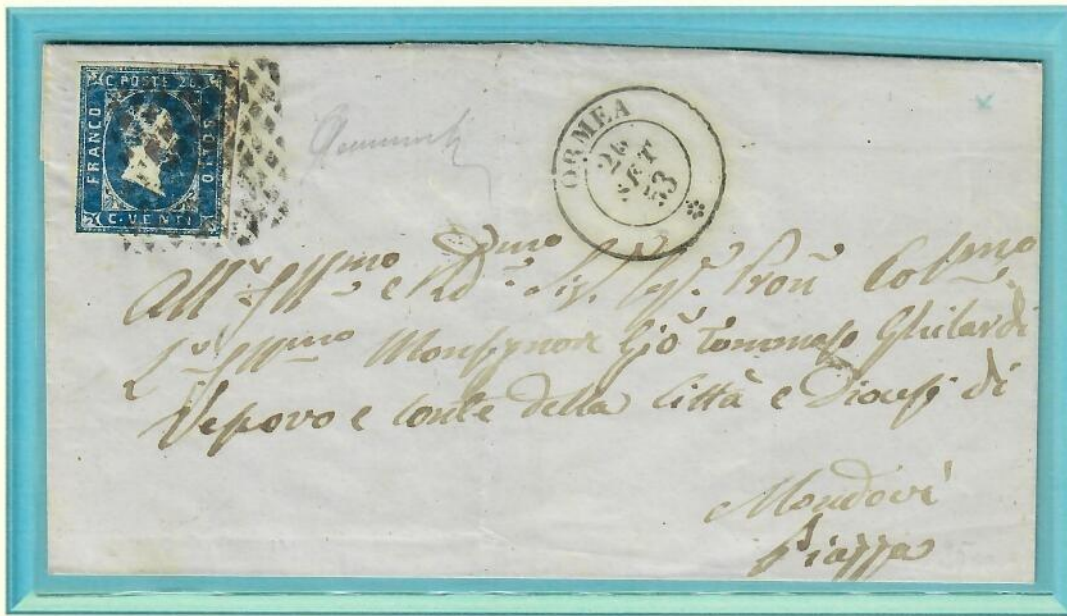 C. POSTE 20
FRANCO
BOLLO
C. VENTI
ORMEA
26
SET
53
All' Ill.mo e Rd.mo Sig. Sig. Pron Col.mo
L' Ill.mo Monsignore Gio Tommaso Ghilardi
Vescovo e Conte della Città e Diocesi di
Mondovi
Piazza